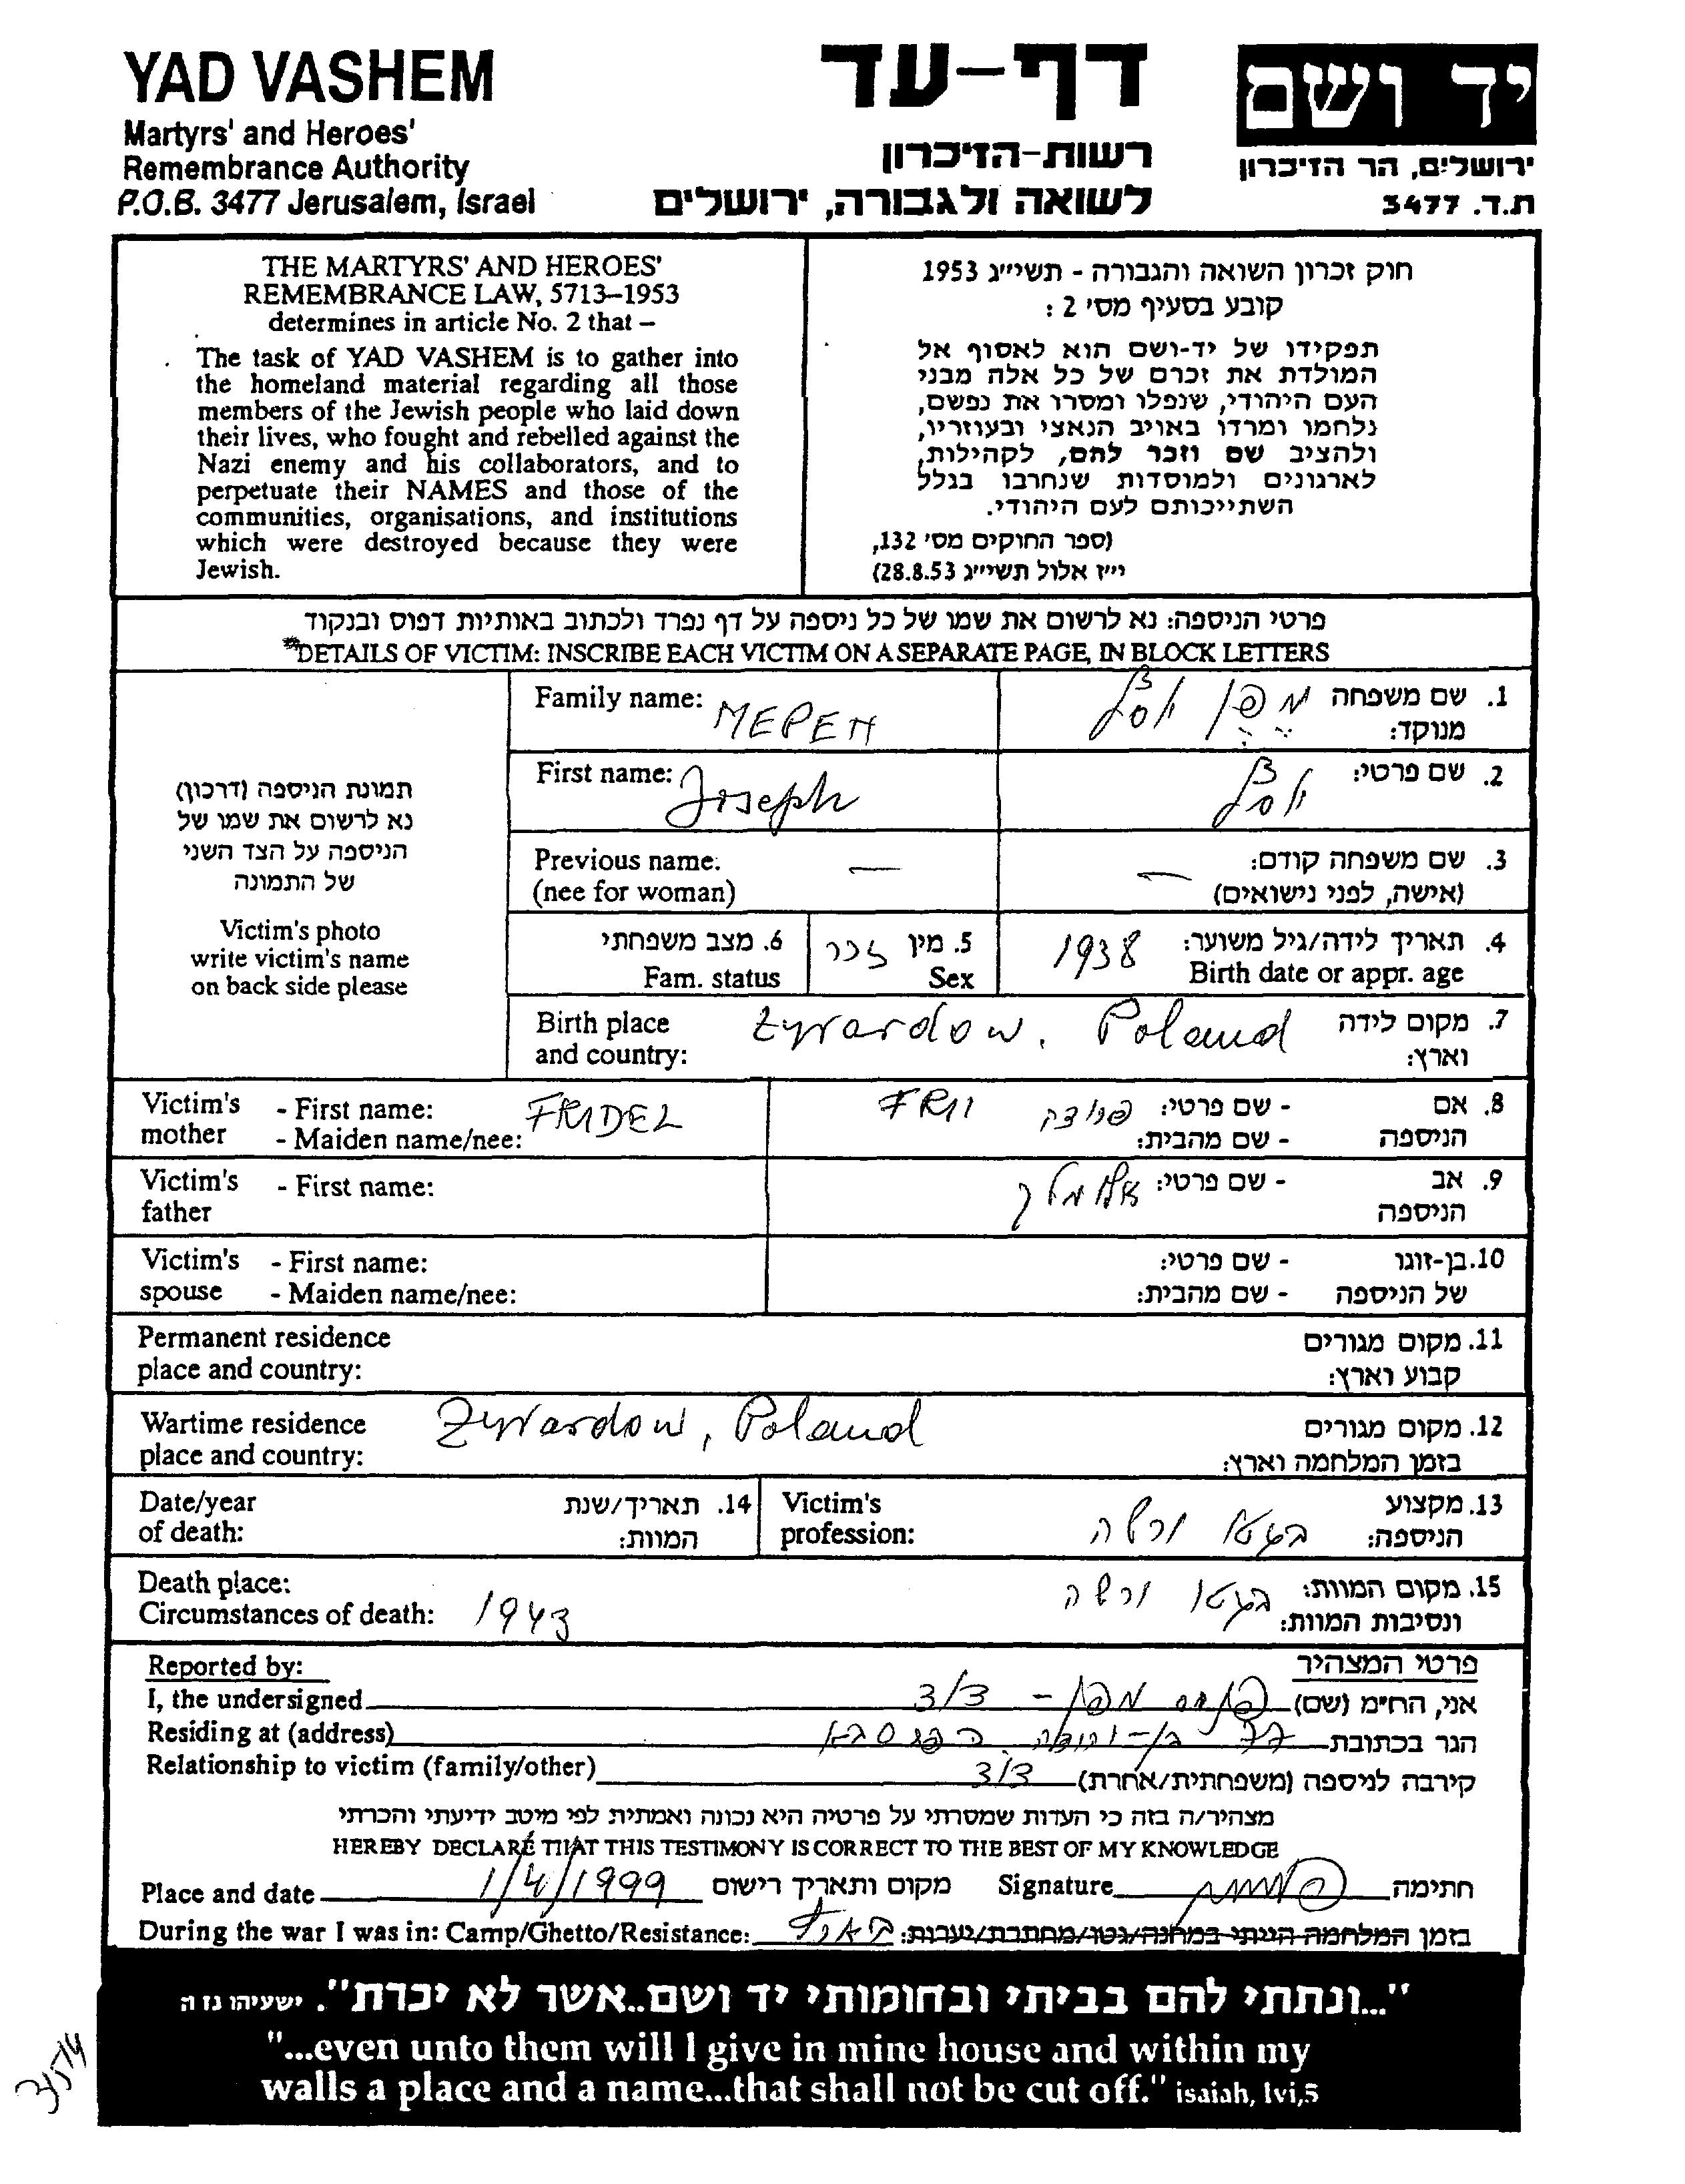 YAD VASHEM
Martyrs' and Heroes'
Remembrance Authority
P.O.B. 3477 Jerusalem, Israel
דף-עד
רשות-הזיכרון
לשואה ולגבורה, ירושלים
יד ושם
ירושלים, הר הזיכרון
ת.ד. 3477
THE MARTYRS' AND HEROES'
REMEMBRANCE LAW, 5713–1953
determines in article No. 2 that –
The task of YAD VASHEM is to gather into
the homeland material regarding all those
members of the Jewish people who laid down
their lives, who fought and rebelled against the
Nazi enemy and his collaborators, and to
perpetuate their NAMES and those of the
communities, organisations, and institutions
which were destroyed because they were
Jewish.
חוק זכרון השואה והגבורה - תשי״ג 1953
קובע בסעיף מס׳ 2 :
תפקידו של יד-ושם הוא לאסוף אל
המולדת את זכרם של כל אלה מבני
העם היהודי, שנפלו ומסרו את נפשם,
נלחמו ומרדו באויב הנאצי ובעוזריו,
ולהציב שם וזכר להם, לקהילות,
לארגונים ולמוסדות שנחרבו בגלל
השתייכותם לעם היהודי.
(ספר החוקים מס׳ 132,
י״ז אלול תשי״ג 28.8.53)
פרטי הניספה: נא לרשום את שמו של כל ניספה על דף נפרד ולכתוב באותיות דפוס ובנקוד
DETAILS OF VICTIM: INSCRIBE EACH VICTIM ON A SEPARATE PAGE, IN BLOCK LETTERS
תמונת הניספה (דרכון)
נא לרשום את שמו של
הניספה על הצד השני
של התמונה
Victim's photo
write victim's name
on back side please
Family name: MEPEH
1. שם משפחה מפן יוסף
מנוקד:
First name: Joseph
2. שם פרטי: יוסף
Previous name: —
(nee for woman)
3. שם משפחה קודם: —
(אישה, לפני נישואים)
6. מצב משפחתי
Fam. status
5. מין זכר
Sex
4. תאריך לידה/גיל משוער: 1938
Birth date or appr. age
Birth place
and country: Zyrardow, Poland
7. מקום לידה
וארץ:
Victim's mother - First name: FRIDEL
- Maiden name/nee:
8. אם הניספה - שם פרטי:
- שם מהבית:
Victim's father - First name:
9. אב הניספה - שם פרטי: אלימלך
Victim's spouse - First name:
- Maiden name/nee:
10. בן-זוגו של הניספה - שם פרטי:
- שם מהבית:
Permanent residence
place and country:
11. מקום מגורים
קבוע וארץ:
Wartime residence
place and country: Zyrardow, Poland
12. מקום מגורים
בזמן המלחמה וארץ:
Date/year
of death:
14. תאריך/שנת
המוות:
Victim's
profession: בגטו ורשה
13. מקצוע
הניספה:
Death place:
Circumstances of death: 1943
15. מקום המוות: בגטו ורשה
ונסיבות המוות:
Reported by:
פרטי המצהיר
I, the undersigned
אני, הח״מ (שם) פנחס מפן - דוד
Residing at (address)
הגר בכתובת
Relationship to victim (family/other)
קירבה לניספה (משפחתית/אחרת) דוד
מצהיר/ה בזה כי העדות שמסרתי על פרטיה היא נכונה ואמתית לפי מיטב ידיעתי והכרתי
HEREBY DECLARE THAT THIS TESTIMONY IS CORRECT TO THE BEST OF MY KNOWLEDGE
Place and date 1/4/1999 מקום ותאריך רישום
Signature חתימה
During the war I was in: Camp/Ghetto/Resistance:
בזמן המלחמה הייתי במחנה/גטו/מחתרת/יערות:
"...ונתתי להם בביתי ובחומותי יד ושם..אשר לא יכרת". ישעיהו נו ה
"...even unto them will I give in mine house and within my
walls a place and a name...that shall not be cut off." isaiah, lvi,5